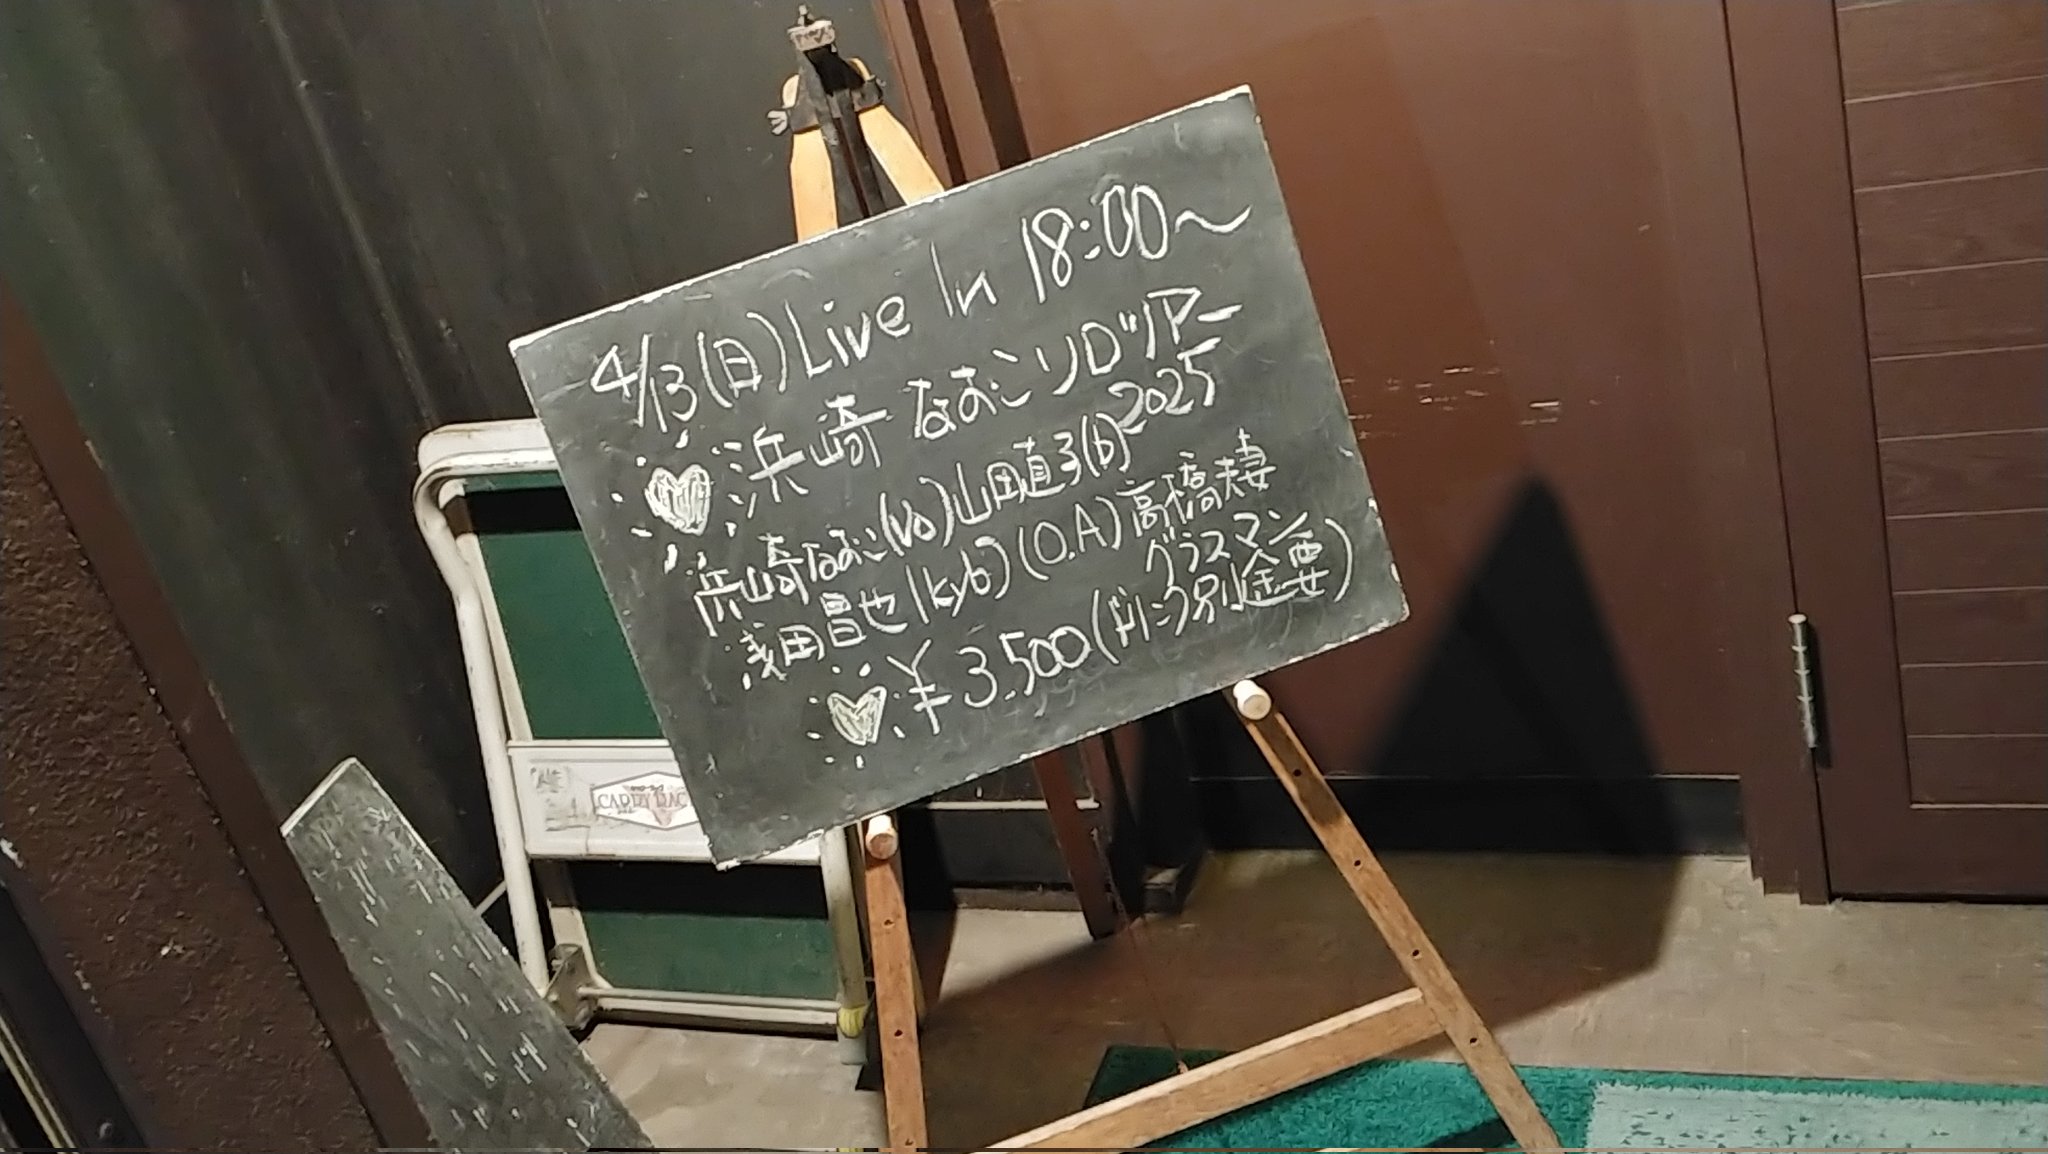 4/13(日)Live In 18:00〜
浜崎なおこソロツアー
2025
浜崎なおこ(Vo)山田直子(b)
浅田昌也(kyb)(O.A)高橋夫妻
グラスマン
¥3.500(ドリンク別途要)